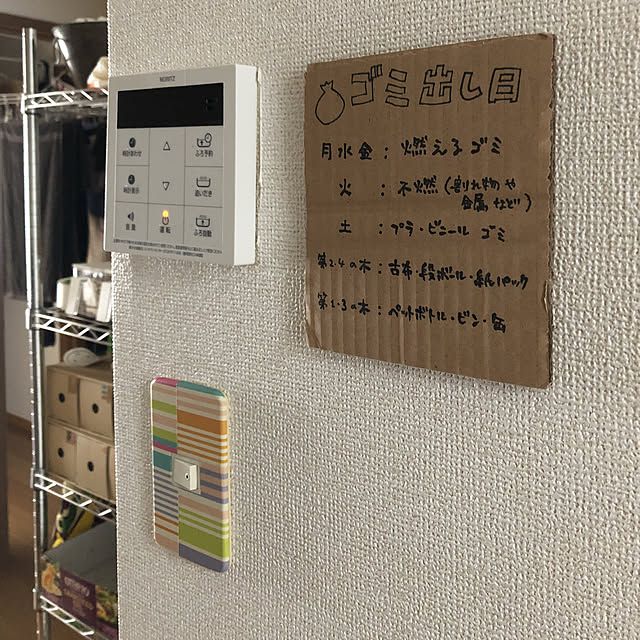 NORITZ
時計合わせ
ふろ予約
時計表示
追いだき
音量
運転
ふろ自動
ゴミ出し日
月水金:燃えるゴミ
火:不燃(割れ物や
金属など)
土:プラ・ビニールゴミ
第2.4の木:古布・段ボール・紙パック
第1.3の木:ペットボトル・ビン・缶